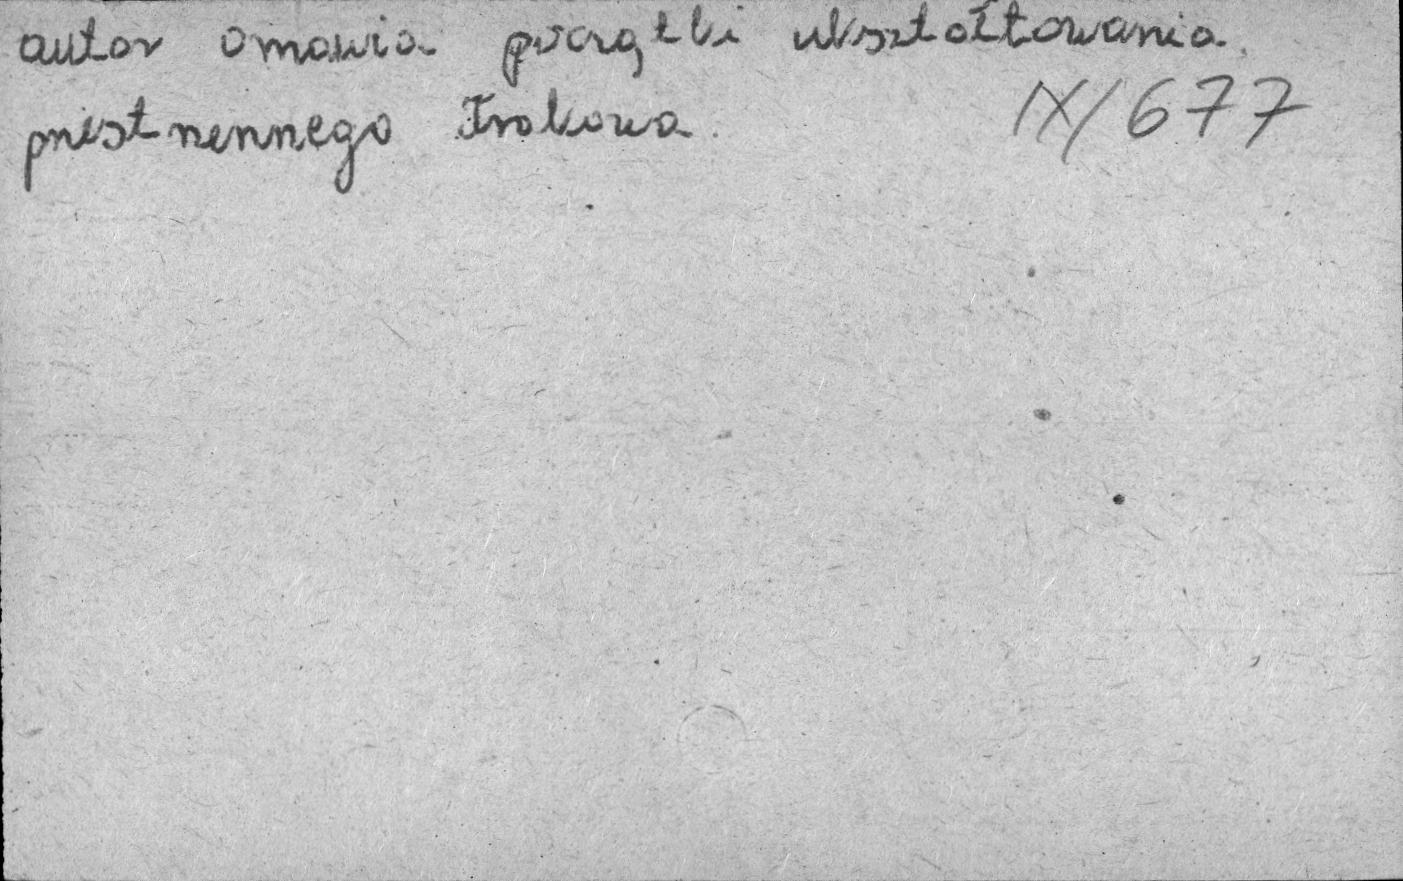 autor omawia początki ukształtowania
przestrzennego Krakowa.
IX/677